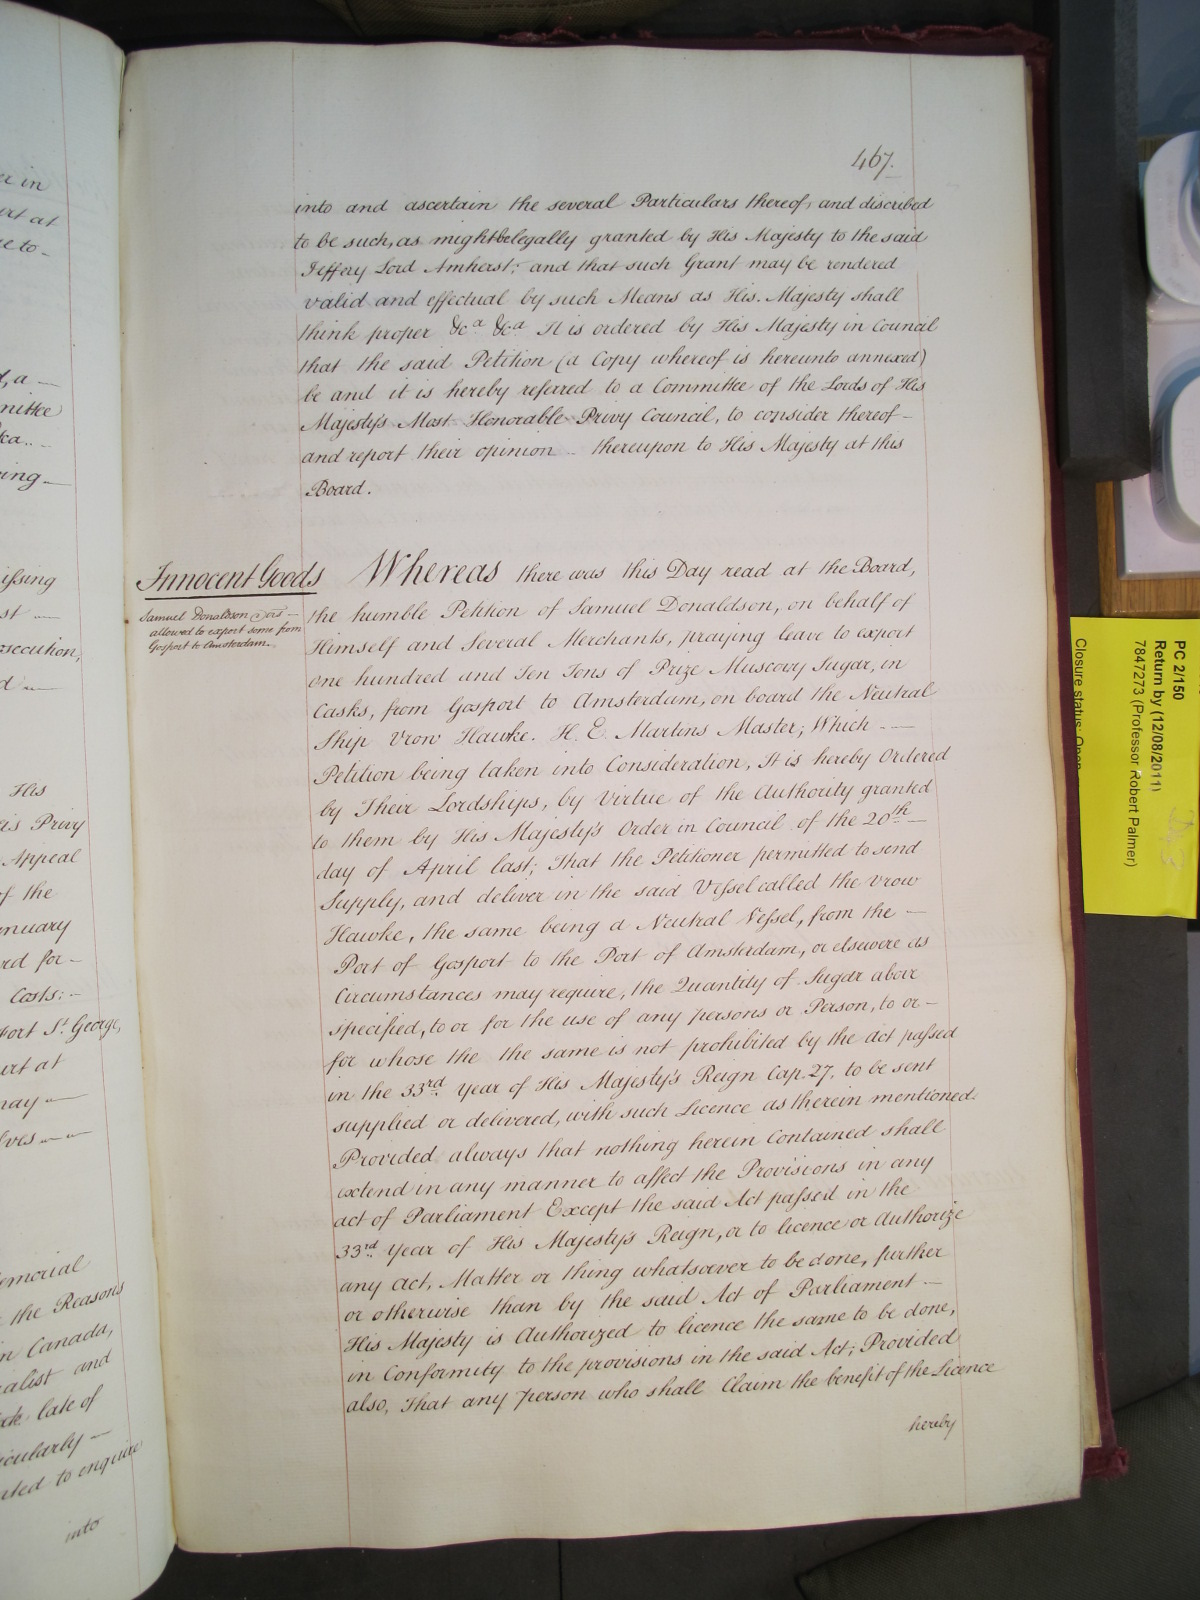 er in
urt at
ue to-
d, a —
mittee
&ca..-
ring—
issing
st —
osecution,
d —
His
is Privy
Appeal
of the
anuary
ed for-
Costs:-
Fort St. George,
urt at
may —
lves — —
emorial
the Reasons
n Canada,
calist and
late of
icularly —
nted to enquire
into
467.
into and ascertain the several Particulars thereof, and discribed
to be such, as might be legally granted by His Majesty to the said
Jeffery Lord Amherst; and that such Grant may be rendered
valid and effectual by such Means as His. Majesty shall
think proper &ca &ca It is ordered by His Majesty in Council
that the said Petition (a Copy whereof is hereunto annexed)
be and it is hereby referred to a Committee of the Lords of His
Majesty's Most Honorable Privy Council, to consider thereof-
and report their opinion - thereupon to His Majesty at this
Board.
Innocent Goods
Samuel Donaldson
allowed to export some from
Gosport to Amsterdam.
Whereas there was this Day read at the Board,
the humble Petition of Samuel Donaldson, on behalf of
Himself and Several Merchants, praying leave to export
one hundred and Ten Tons of Prize Muscovy Sugar, in
Casks, from Gosport to Amsterdam, on board the Neutral
Ship Vrow Hawke. H. E. Martins Master; Which ---
Petition being taken into Consideration, It is hereby Ordered
by Their Lordships, by Virtue of the Authority granted
to them by His Majesty's Order in Council of the 20th —
day of April last; That the Petitioner permitted to send
Supply, and deliver in the said Vessel called the Vrow
Hawke, the same being a Neutral Vessel, from the —
Port of Gosport to the Port of Amsterdam, or elsewere as
Circumstances may require, the Quantity of Sugar above
specified, to or for the use of any persons or Person, to or -
for whose the the same is not prohibited by the act passed
in the 33rd. Year of His Majesty's Reign Cap. 27, to be sent
supplied or delivered, with such Licence as therein mentioned.
Provided always that nothing herein Contained shall
extend in any manner to affect the Provisions in any
act of Parliament Except the said Act passed in the
33rd. Year of His Majesty's Reign, or to licence or Authorize
any act, Matter or thing whatsoever to be done, further
or otherwise than by the said Act of Parliament —
His Majesty is Authorized to licence the same to be done,
in Conformity to the provisions in the said Act; Provided
also, That any person who shall Claim the benefit of the Licence
hereby
PC 2/150
Return by (12/08/2011)
7847273 (Professor Robert Palmer)
Closure status: Open